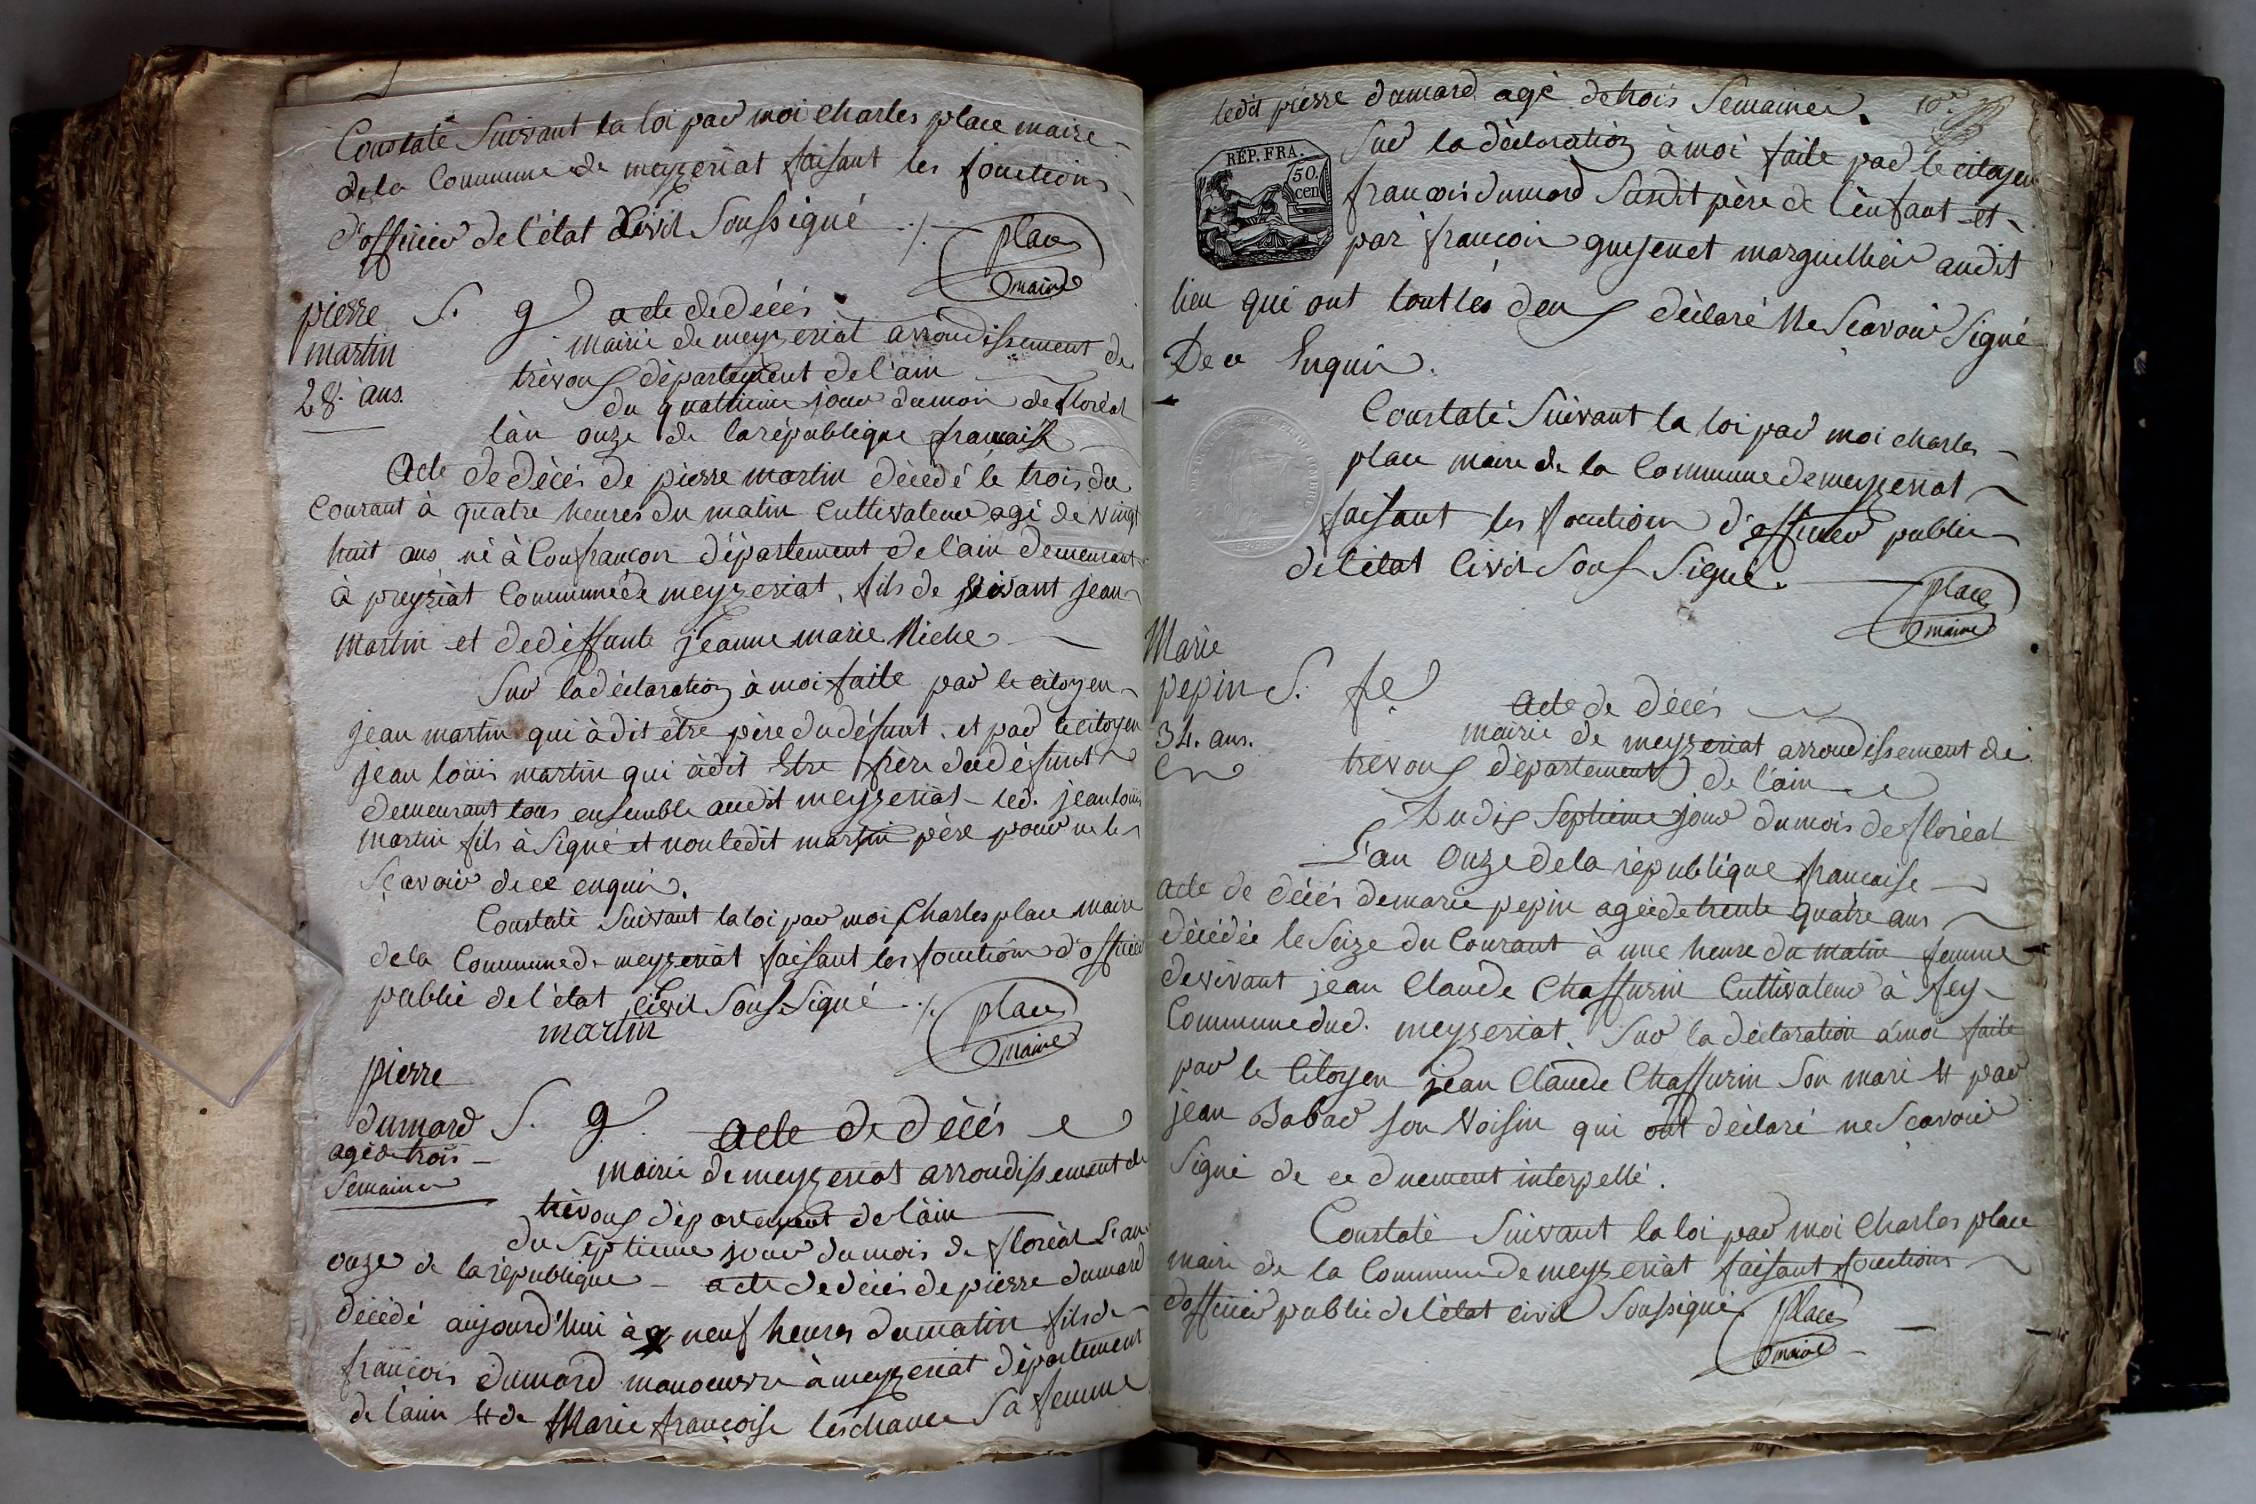 Constaté Suivant la loi par moi Charles place maire
de la Commune de meyzeriat faisant les fonctions
d'officier de l'état Civil Soussigné ./.
place
maire
pierre
martin
28. ans.
S. g
acte de décés
mairie de meyzeriat arrondissement de
trèvoux département de l'ain
du quattrieme jour du mois de floréal
l'an onze de la république francaise
Acte de décés de pierre martin décédé le trois du
Courant à quatre heures du matin Cultivateur agé de vingt
huit ans né à Confrancon département de l'ain demeurant
à preyziat Commune de meyzeriat, fils de vivant jean
Martin et de deffunte jeanne marie Niche
Sur la déclaration à moi faite par le citoyen
jean martin qui à dit être père du défunt, et par le citoyen
jean loüis martin qui à dit Etre frère du défunt
demeurant tous ensemble audit meyzeriat led. jean loüis
Martin fils à Signé et non ledit martin père pour ne le
Sçavoir de ce enquis.
Constaté Suivant la loi par moi Charles place maire
de la Commune de meyzeriat faisant les fonctions d'officier
public de l'état Civil Soussigné ./.
martin
place
maire
pierre
dumard
agé de trois
Semaines
S. g
acte de décés
mairie de meyzeriat arrondissement de
trèvoux département de l'ain
du Septieme jour du mois de floréal L'an
onze de la république acte de décés de pierre dumard
décédé aujourd'hui à neuf heures du matin fils de
françois dumard manoeuvre à meyzeriat département
de l'ain et de Marie françoise leschaux Sa femme
ledit pierre dumard agé de trois Semaines.
10e
REP. FRA.
50.
cen
Sur la déclaration à moi faite par le citoyen
françois dumard Susdit père de l'enfant et
par françois guyenet marguillier audit
lieu qui ont tout les deux déclaré Ne Scavoir Signé
De ce Enquis.
Constaté Suivant la loi par moi charles
place maire de la Commune de meyzeriat
faisant les fonctions d'officier public
de l'état Civil Sous Signé.
place
maire
Marie
pepin
34. ans.
S. fe
acte de décés
mairie de meyzeriat arrondissement de
trevoux département de l'ain
Dudix Septieme jour du mois de floréal
L'an Onze de la république francaise
acte de décés de marie pepin agée de trente quatre ans
décédée le Seize du Courant à une heure du matin femme
de vivant jean Claude Chaffurin Cultivateur à fey
Commune dud. meyzeriat. Sur la déclaration à moi faite
par le Citoyen jean Claude Chaffurin Son mari et par
jean Babad Son Voisin qui ont déclaré ne Scavoir
Signé de ce duement interpellé.
Constaté Suivant la loi par moi Charles place
maire de la Commune de meyzeriat faisant fonctions
d'officier public de l'état civil Soussigné
place
maire